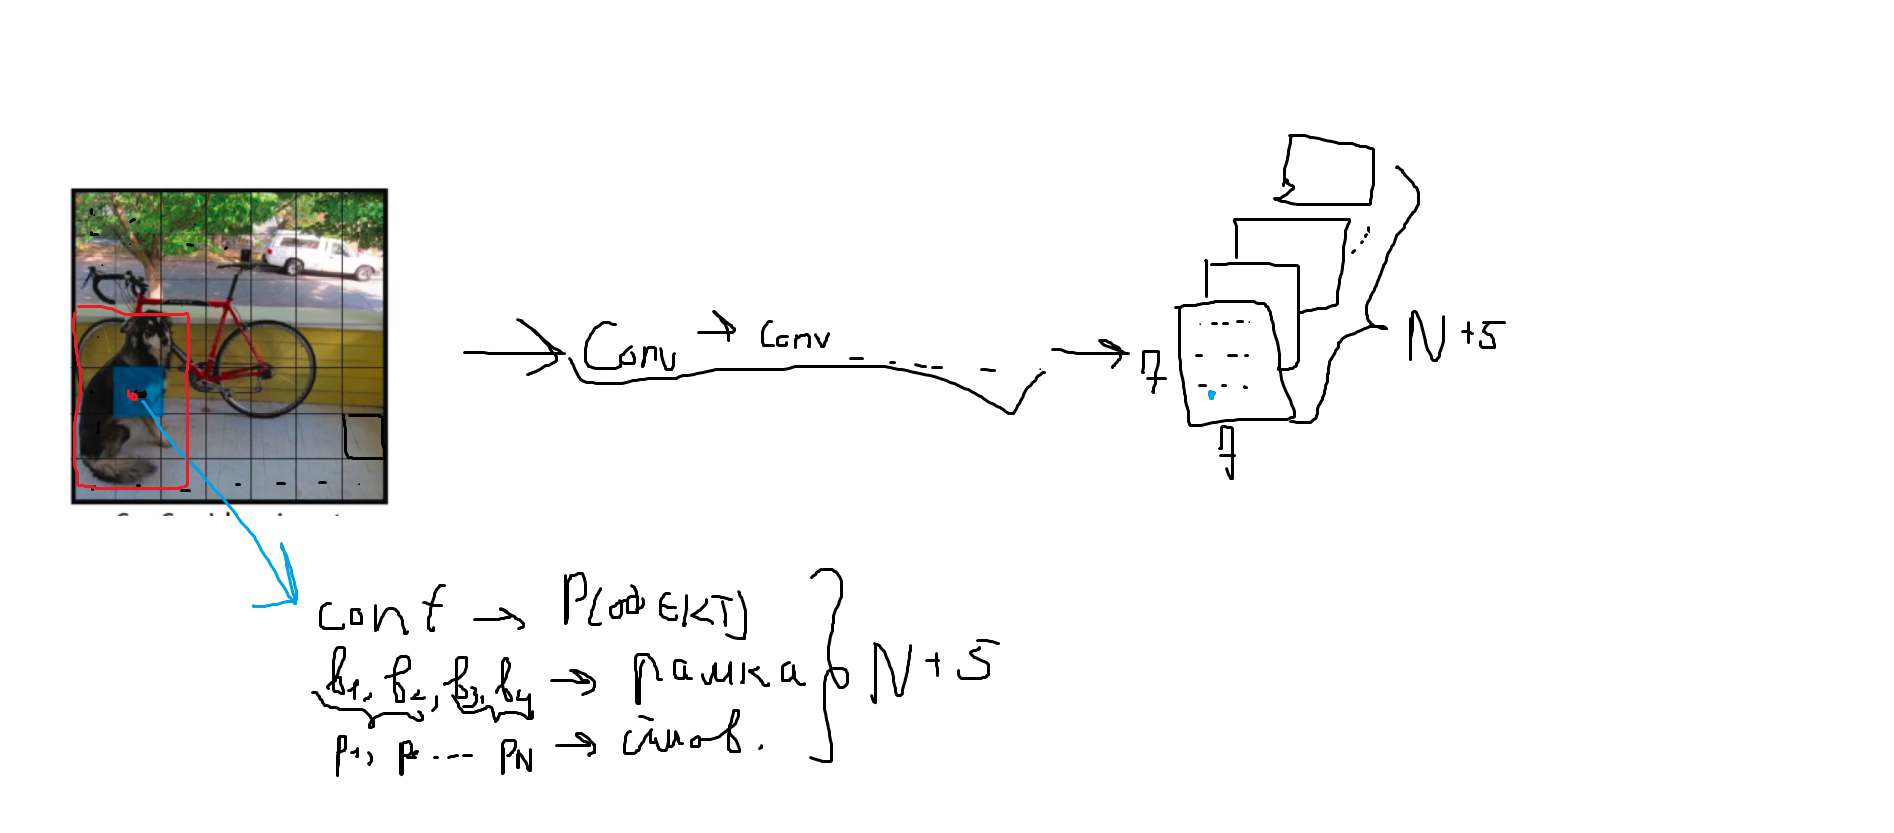 Conv → Conv
7
7
N+5
conf → P(объект)
b1, b2, b3, b4 → рамка
N+5
p1, p2 ... pN → ймов.